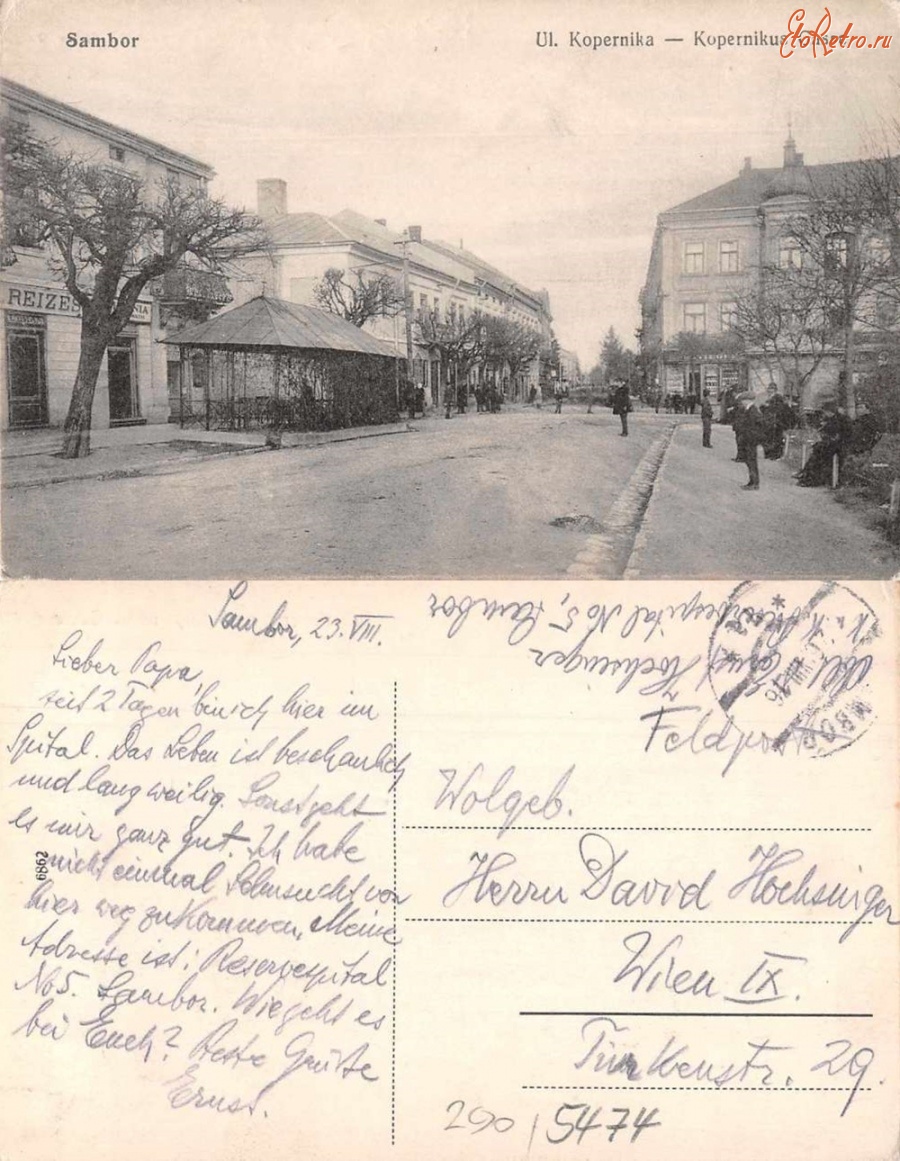 Sambor
Ul. Kopernika — Kopernikus
EtoRetro.ru
REIZES
Sambor, 23. VIII.
Lieber Papa,
seit 2 Tagen bin ich hier im
Spital. Das Leben ist beschaulich
und langweilig. Sonst geht
es mir ganz gut. Ich habe
nicht einmal Sehnsucht von
hier weg zu kommen. Meine
Adresse ist: Reservespital
No 5. Sambor. Wie geht es
bei Euch? Beste Grüße
Ernst.
6862
Ernst Hochsinger
K. u. K. Reservespital No 5, Sambor
Feldpost
Wolgeb.
Herrn David Hochsinger
Wien IX.
Türkenstr. 29.
290/5474